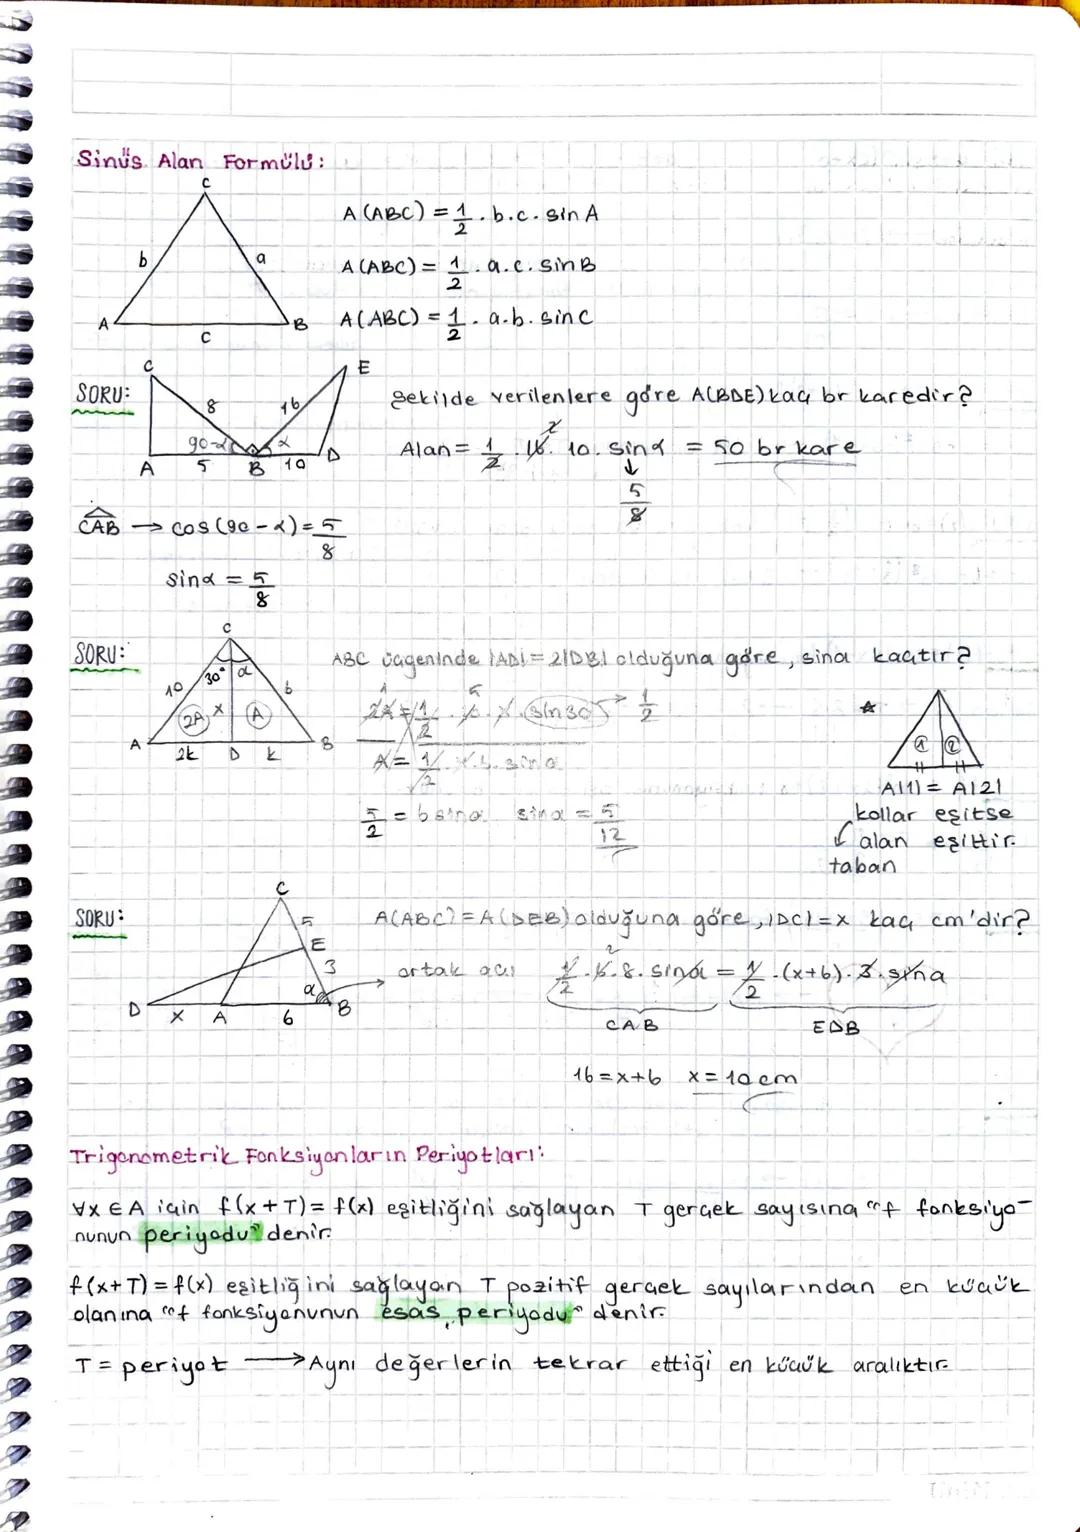 Sinüs Alan Formülü:
C
b
a
A
B
c
A(ABC) = 1/2 . b.c. sin A
A(ABC) = 1/2 . a.c. sin B
A(ABC) = 1/2 . a.b. sin C
SORU:
C
E
8
16
90-α
α
A
5
B
10
D
Şekilde verilenlere göre A(BDE) kaç br karedir?
Alan = 1/2 . 16 . 10 . sinα = 50 br kare
2
5/8
CAB → cos(90-α) = 5/8
sinα = 5/8
SORU:
C
30°
α
10
6
x
2A
A
A
2k
D
k
B
ABC üçgeninde |AD| = 2|DB| olduğuna göre, sinα kaçtır?
2A = 1/2 . 10 . x . sin30 → 1/2
A = 1/2 . x . 6 . sinα
5/2 = 6 sinα sinα = 5/12
1
2
A(1) = A(2)
kollar eşitse
alan eşittir.
taban
SORU:
C
5
E
3
α
D
x
A
6
B
A(ABC) = A(DEB) olduğuna göre, |DC| = x kaç cm'dir?
ortak açı
1/2 . 6 . 8 . sinα = 1/2 . (x+6) . 3 . sinα
2
CAB
EDB
16 = x+6 x = 10 cm
Trigonometrik Fonksiyonların Periyotları:
∀x ∈ A için f(x+T) = f(x) eşitliğini sağlayan T gerçek sayısına "f fonksiyo-
nunun periyodu" denir.
f(x+T) = f(x) eşitliğini sağlayan T pozitif gerçek sayılarından en küçük
olanına "f fonksiyonunun esas periyodu" denir.
T = periyot → Aynı değerlerin tekrar ettiği en küçük aralıktır.